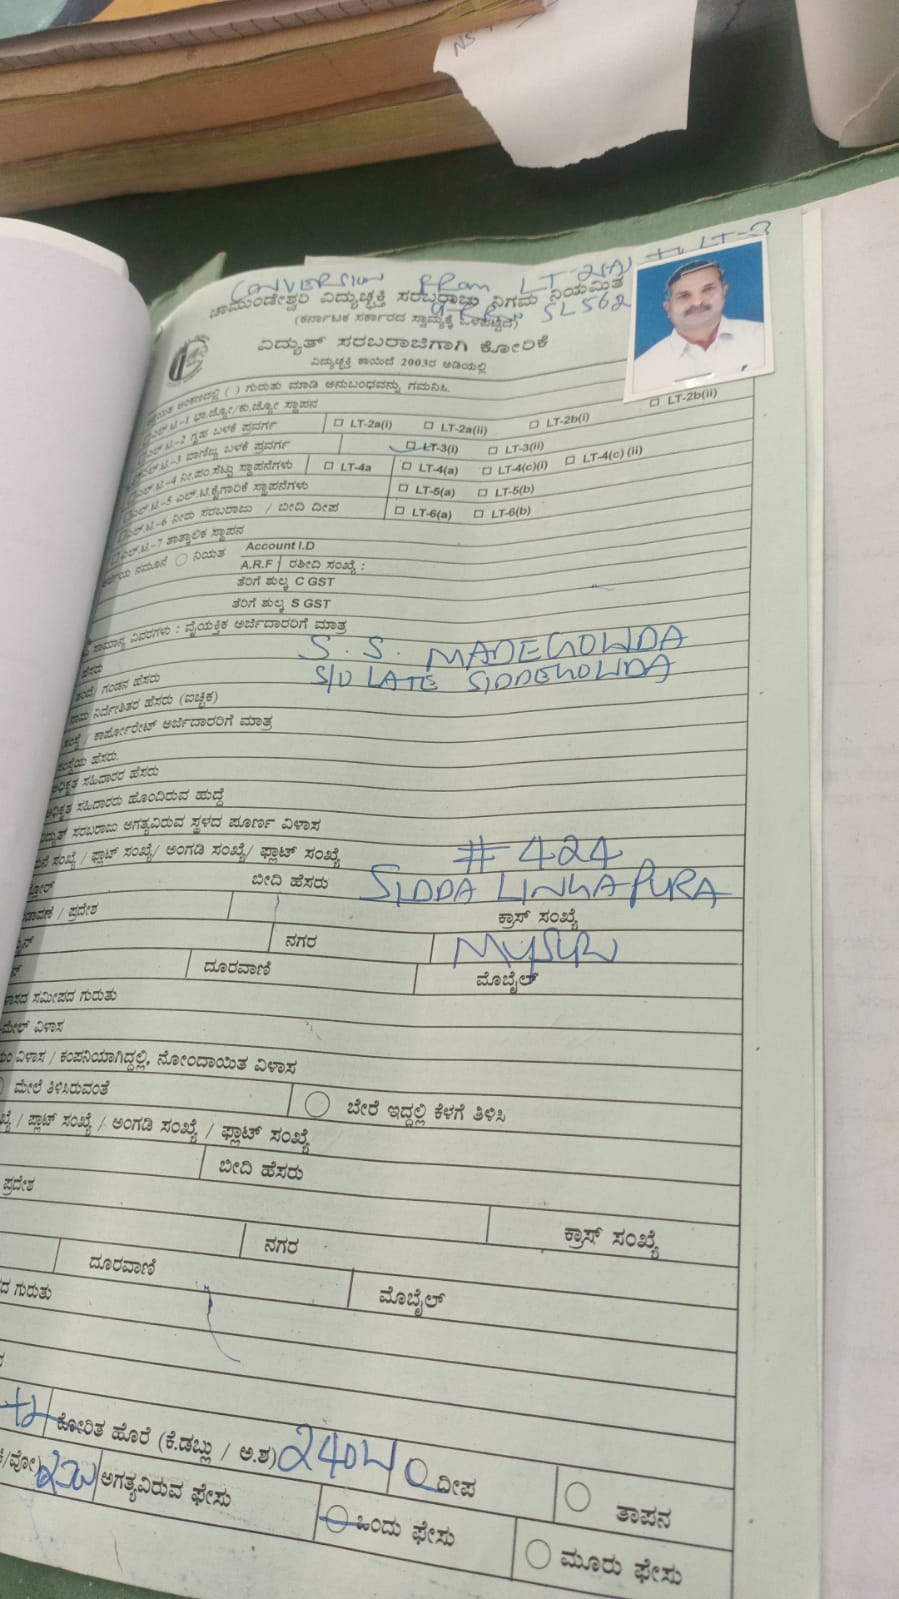 CONVERSION From LT-2(a) to LT-3
ಚಾಮುಂಡೇಶ್ವರಿ ವಿದ್ಯುಚ್ಛಕ್ತಿ ಸರಬರಾಜು ನಿಗಮ ನಿಯಮಿತ
(ಕರ್ನಾಟಕ ಸರ್ಕಾರದ ಸ್ವಾಮ್ಯಕ್ಕೆ ಒಳಪಟ್ಟಿದೆ) SL562
ವಿದ್ಯುತ್ ಸರಬರಾಜಿಗಾಗಿ ಕೋರಿಕೆ
ವಿದ್ಯುಚ್ಛಕ್ತಿ ಕಾಯಿದೆ 2003ರ ಅಡಿಯಲ್ಲಿ
ಅಂಕಣದಲ್ಲಿ ( ) ಗುರುತು ಮಾಡಿ ಅನುಬಂಧವನ್ನು ಗಮನಿಸಿ.
ಎಲ್.ಟಿ.-1 ಭಾ.ಜ್ಯೋ/ಕು.ಜ್ಯೋ ಸ್ಥಾಪನ
ಎಲ್.ಟಿ.-2 ಗೃಹ ಬಳಕೆ ಪ್ರವರ್ಗ LT-2a(i) LT-2a(ii) LT-2b(i) LT-2b(ii)
ಎಲ್.ಟಿ.-3 ವಾಣಿಜ್ಯ ಬಳಕೆ ಪ್ರವರ್ಗ LT-3(i) LT-3(ii)
ಎಲ್.ಟಿ.-4 ನೀ.ಪಂ.ಸೆಟ್ಟು ಸ್ಥಾಪನೆಗಳು LT-4a LT-4(a) LT-4(c)(i) LT-4(c) (ii)
ಎಲ್.ಟಿ.-5 ಎಲ್.ಟಿ.ಕೈಗಾರಿಕೆ ಸ್ಥಾಪನೆಗಳು LT-5(a) LT-5(b)
ಎಲ್.ಟಿ.-6 ನೀರು ಸರಬರಾಜು / ಬೀದಿ ದೀಪ LT-6(a) LT-6(b)
ಎಲ್.ಟಿ.-7 ತಾತ್ಕಾಲಿಕ ಸ್ಥಾಪನ
ನಮೂನೆ ನಿಯತ Account I.D
A.R.F ರಶೀದಿ ಸಂಖ್ಯೆ :
ತೆರಿಗೆ ಶುಲ್ಕ C GST
ತೆರಿಗೆ ಶುಲ್ಕ S GST
ಸಾಮಾನ್ಯ ವಿವರಗಳು : ವೈಯಕ್ತಿಕ ಅರ್ಜಿದಾರರಿಗೆ ಮಾತ್ರ
ಹೆಸರು S. S. MADEGOWDA
ಗಂಡನ ಹೆಸರು S/O LATE SIDDEGOWDA
ನಾಮ ನಿರ್ದೇಶಿತರ ಹೆಸರು (ಐಚ್ಛಿಕ)
ಸಂಸ್ಥೆ / ಕಾರ್ಪೋರೇಟ್ ಅರ್ಜಿದಾರರಿಗೆ ಮಾತ್ರ
ಸಂಸ್ಥೆಯ ಹೆಸರು.
ಅಧಿಕೃತ ಸಹಿದಾರರ ಹೆಸರು
ಅಧಿಕೃತ ಸಹಿದಾರರು ಹೊಂದಿರುವ ಹುದ್ದೆ
ವಿದ್ಯುತ್ ಸರಬರಾಜು ಅಗತ್ಯವಿರುವ ಸ್ಥಳದ ಪೂರ್ಣ ವಿಳಾಸ
ಮನೆ ಸಂಖ್ಯೆ / ಫ್ಲಾಟ್ ಸಂಖ್ಯೆ/ ಅಂಗಡಿ ಸಂಖ್ಯೆ/ ಫ್ಲಾಟ್ ಸಂಖ್ಯೆ # 424
ಬೀದಿ ಹೆಸರು SIDDA LINGAPURA
ಬಡಾವಣೆ / ಪ್ರದೇಶ ಕ್ರಾಸ್ ಸಂಖ್ಯೆ
ನಗರ Mysuru
ದೂರವಾಣಿ ಮೊಬೈಲ್
ಸಮೀಪದ ಗುರುತು
ವಿಳಾಸ
ವಿಳಾಸ / ಕಂಪನಿಯಾಗಿದ್ದಲ್ಲಿ, ನೋಂದಾಯಿತ ವಿಳಾಸ
ಮೇಲೆ ತಿಳಿಸಿರುವಂತೆ ಬೇರೆ ಇದ್ದಲ್ಲಿ ಕೆಳಗೆ ತಿಳಿಸಿ
/ ಪ್ಲಾಟ್ ಸಂಖ್ಯೆ / ಅಂಗಡಿ ಸಂಖ್ಯೆ / ಫ್ಲಾಟ್ ಸಂಖ್ಯೆ
ಬೀದಿ ಹೆಸರು
ಪ್ರದೇಶ ಕ್ರಾಸ್ ಸಂಖ್ಯೆ
ನಗರ
ದೂರವಾಣಿ ಮೊಬೈಲ್
ಗುರುತು
ಕೋರಿತ ಹೊರೆ (ಕೆ.ಡಬ್ಲು / ಅ.ಶ) 240W ದೀಪ ತಾಪನ
ಅಗತ್ಯವಿರುವ ಫೇಸು ಒಂದು ಫೇಸು ಮೂರು ಫೇಸು